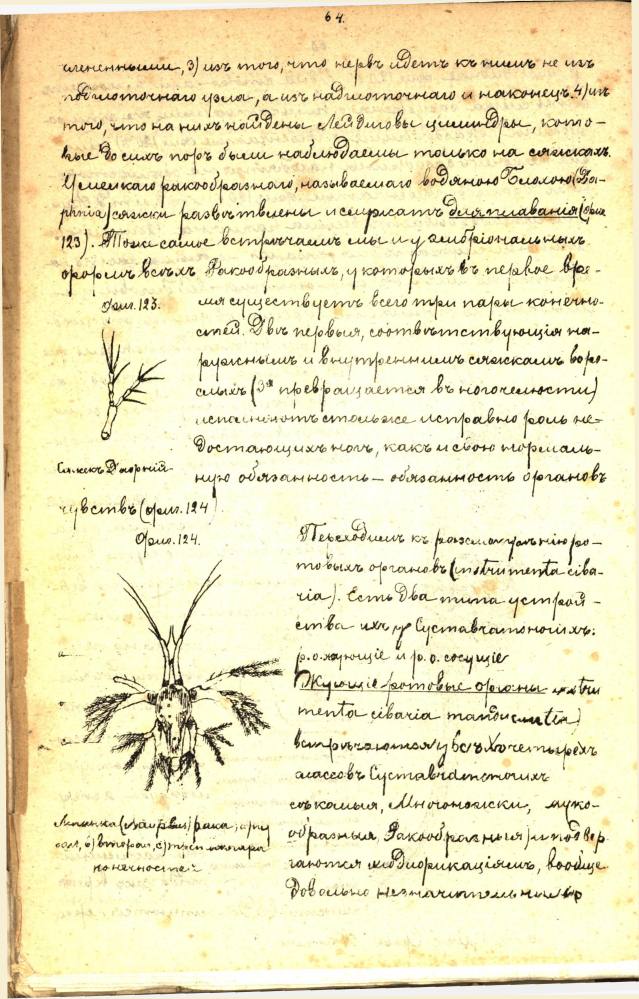 64.
члененными, 3) изъ того, что нервъ идетъ къ нимъ не изъ
подглоточнаго узла, а изъ надглоточнаго и наконецъ 4) изъ
того, что на нихъ найдены Лейдиговы цилиндры, кото-
рые до сихъ поръ были наблюдаемы только на сяжкахъ.
У мелкаго ракообразнаго, называемаго водяною блохою (Da-
phnia) сяжки развѣтвлены и служатъ для плаванія (фиг.
123). Тоже самое встрѣчаемъ мы и у эмбріональныхъ
формъ всѣхъ Ракообразныхъ, у которыхъ въ первое вре-
Фиг. 123.
мя существуетъ всего три пары конечно-
стей. Двѣ первыя, соотвѣтствующія на-
ружнымъ и внутреннимъ сяжкамъ взро-
слыхъ (3я превращается въ ногочелюсти)
исполняютъ столь же исправно роль не-
достающихъ ногъ, какъ и свою нормаль-
Сяжекъ Дафній
ную обязанность — обязанность органовъ
чувствъ (фиг. 124)
Фиг. 124.
Переходимъ къ разсмотрѣнію ро-
товыхъ органовъ (instrumenta ciba-
ria). Есть два типа устрой-
ства ихъ у Суставчатоногихъ:
р. о. жующіе и р. о. сосущіе
Жующіе ротовые органы instru
menta cibaria
встрѣчаются у всѣхъ четырехъ
классовъ Суставчатоногихъ
Многоножки,
образныя Ракообразныя) и подвер
гаются модификаціямъ, вообще
довольно незначительнымъ
Личинка рака; а) пер
вая, б) вторая, с) третья пара
конечностей